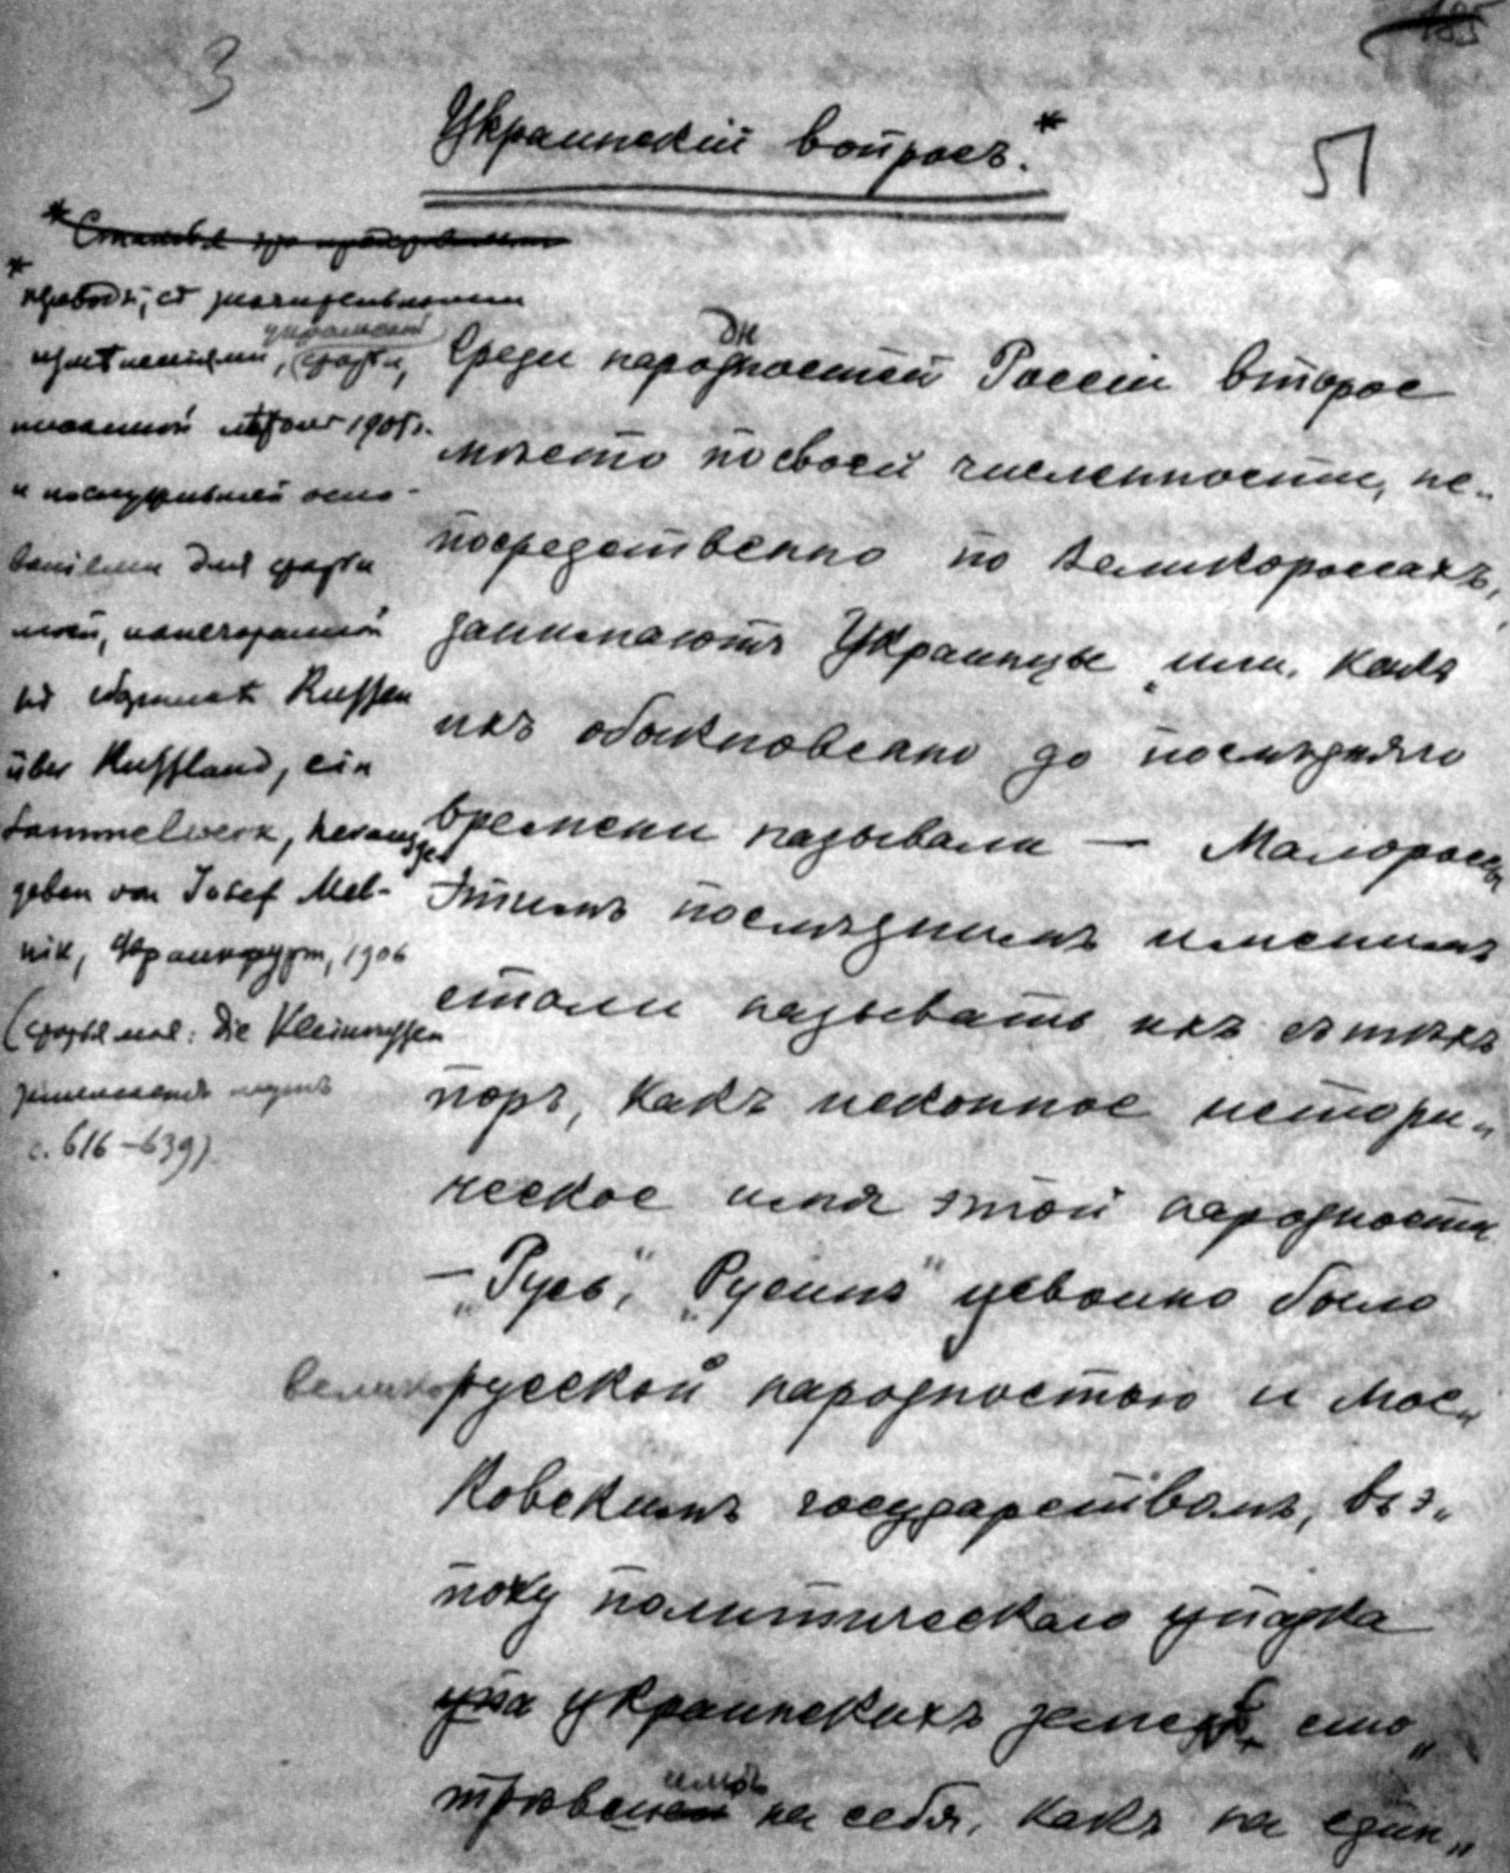 3
185
Украинскій вопросъ.*
51
*
* переводъ, съ
украинской
измѣненіями, (статьи,
писанной лѣтомъ 1905 г.
и послужившей осно-
ваніемъ для статьи
моей, напечатанной
въ сборникѣ Russen
über Russland, ein
Sammelwerk, herausge
geben von Josef Mel-
nik, Франкфурт, 1906
(статья моя: Die Kleinrussen
с. 616–639)
Среди народностей Россіи второе
мѣсто по своей численности, не„
посредственно по великороссахъ,
занимаютъ Украинцы „или, какъ
ихъ обыкновенно до послѣдняго
времени называли — Малороссы
Этимъ послѣднимъ именемъ
стали называть ихъ съ тѣхъ
поръ, какъ исконное истори„
ческое имя этой народности
— „Русь“, „Русинъ“ усвоено было
великорусской народностью и Мос„
ковскимъ государствомъ, въ э„
поху политическаго упадка
украинскихъ земель, смо„
трѣвшимъ на себя, какъ на един„